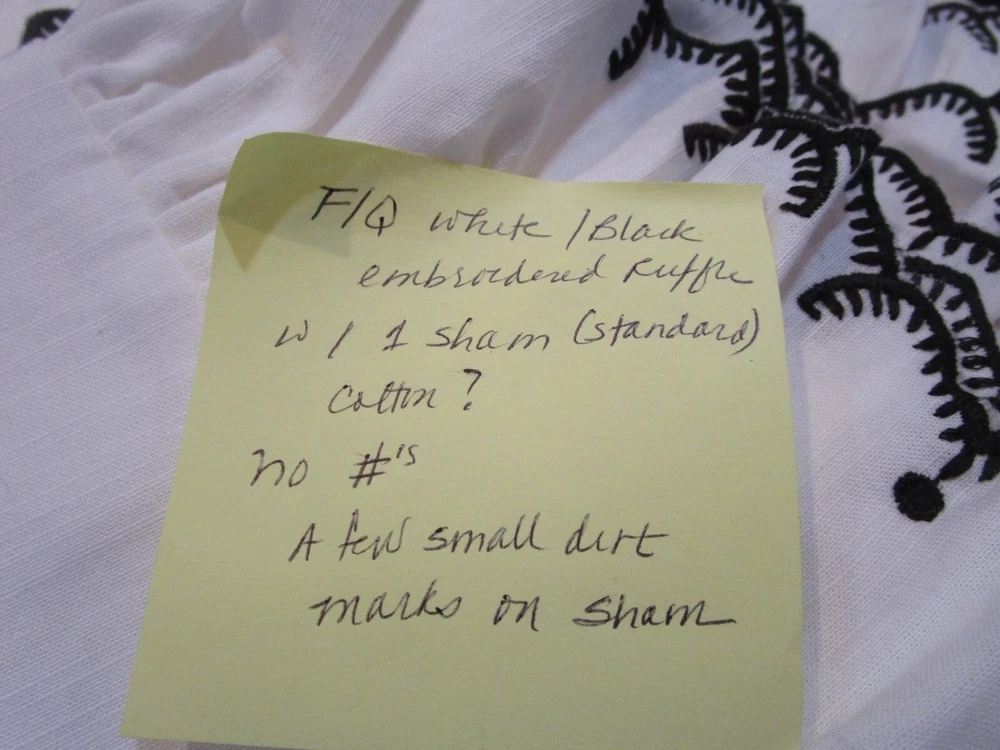 F/Q White / Black
embroidered Ruffle
w / 1 sham (standard)
Cotton?
no #'s
A few small dirt
marks on sham